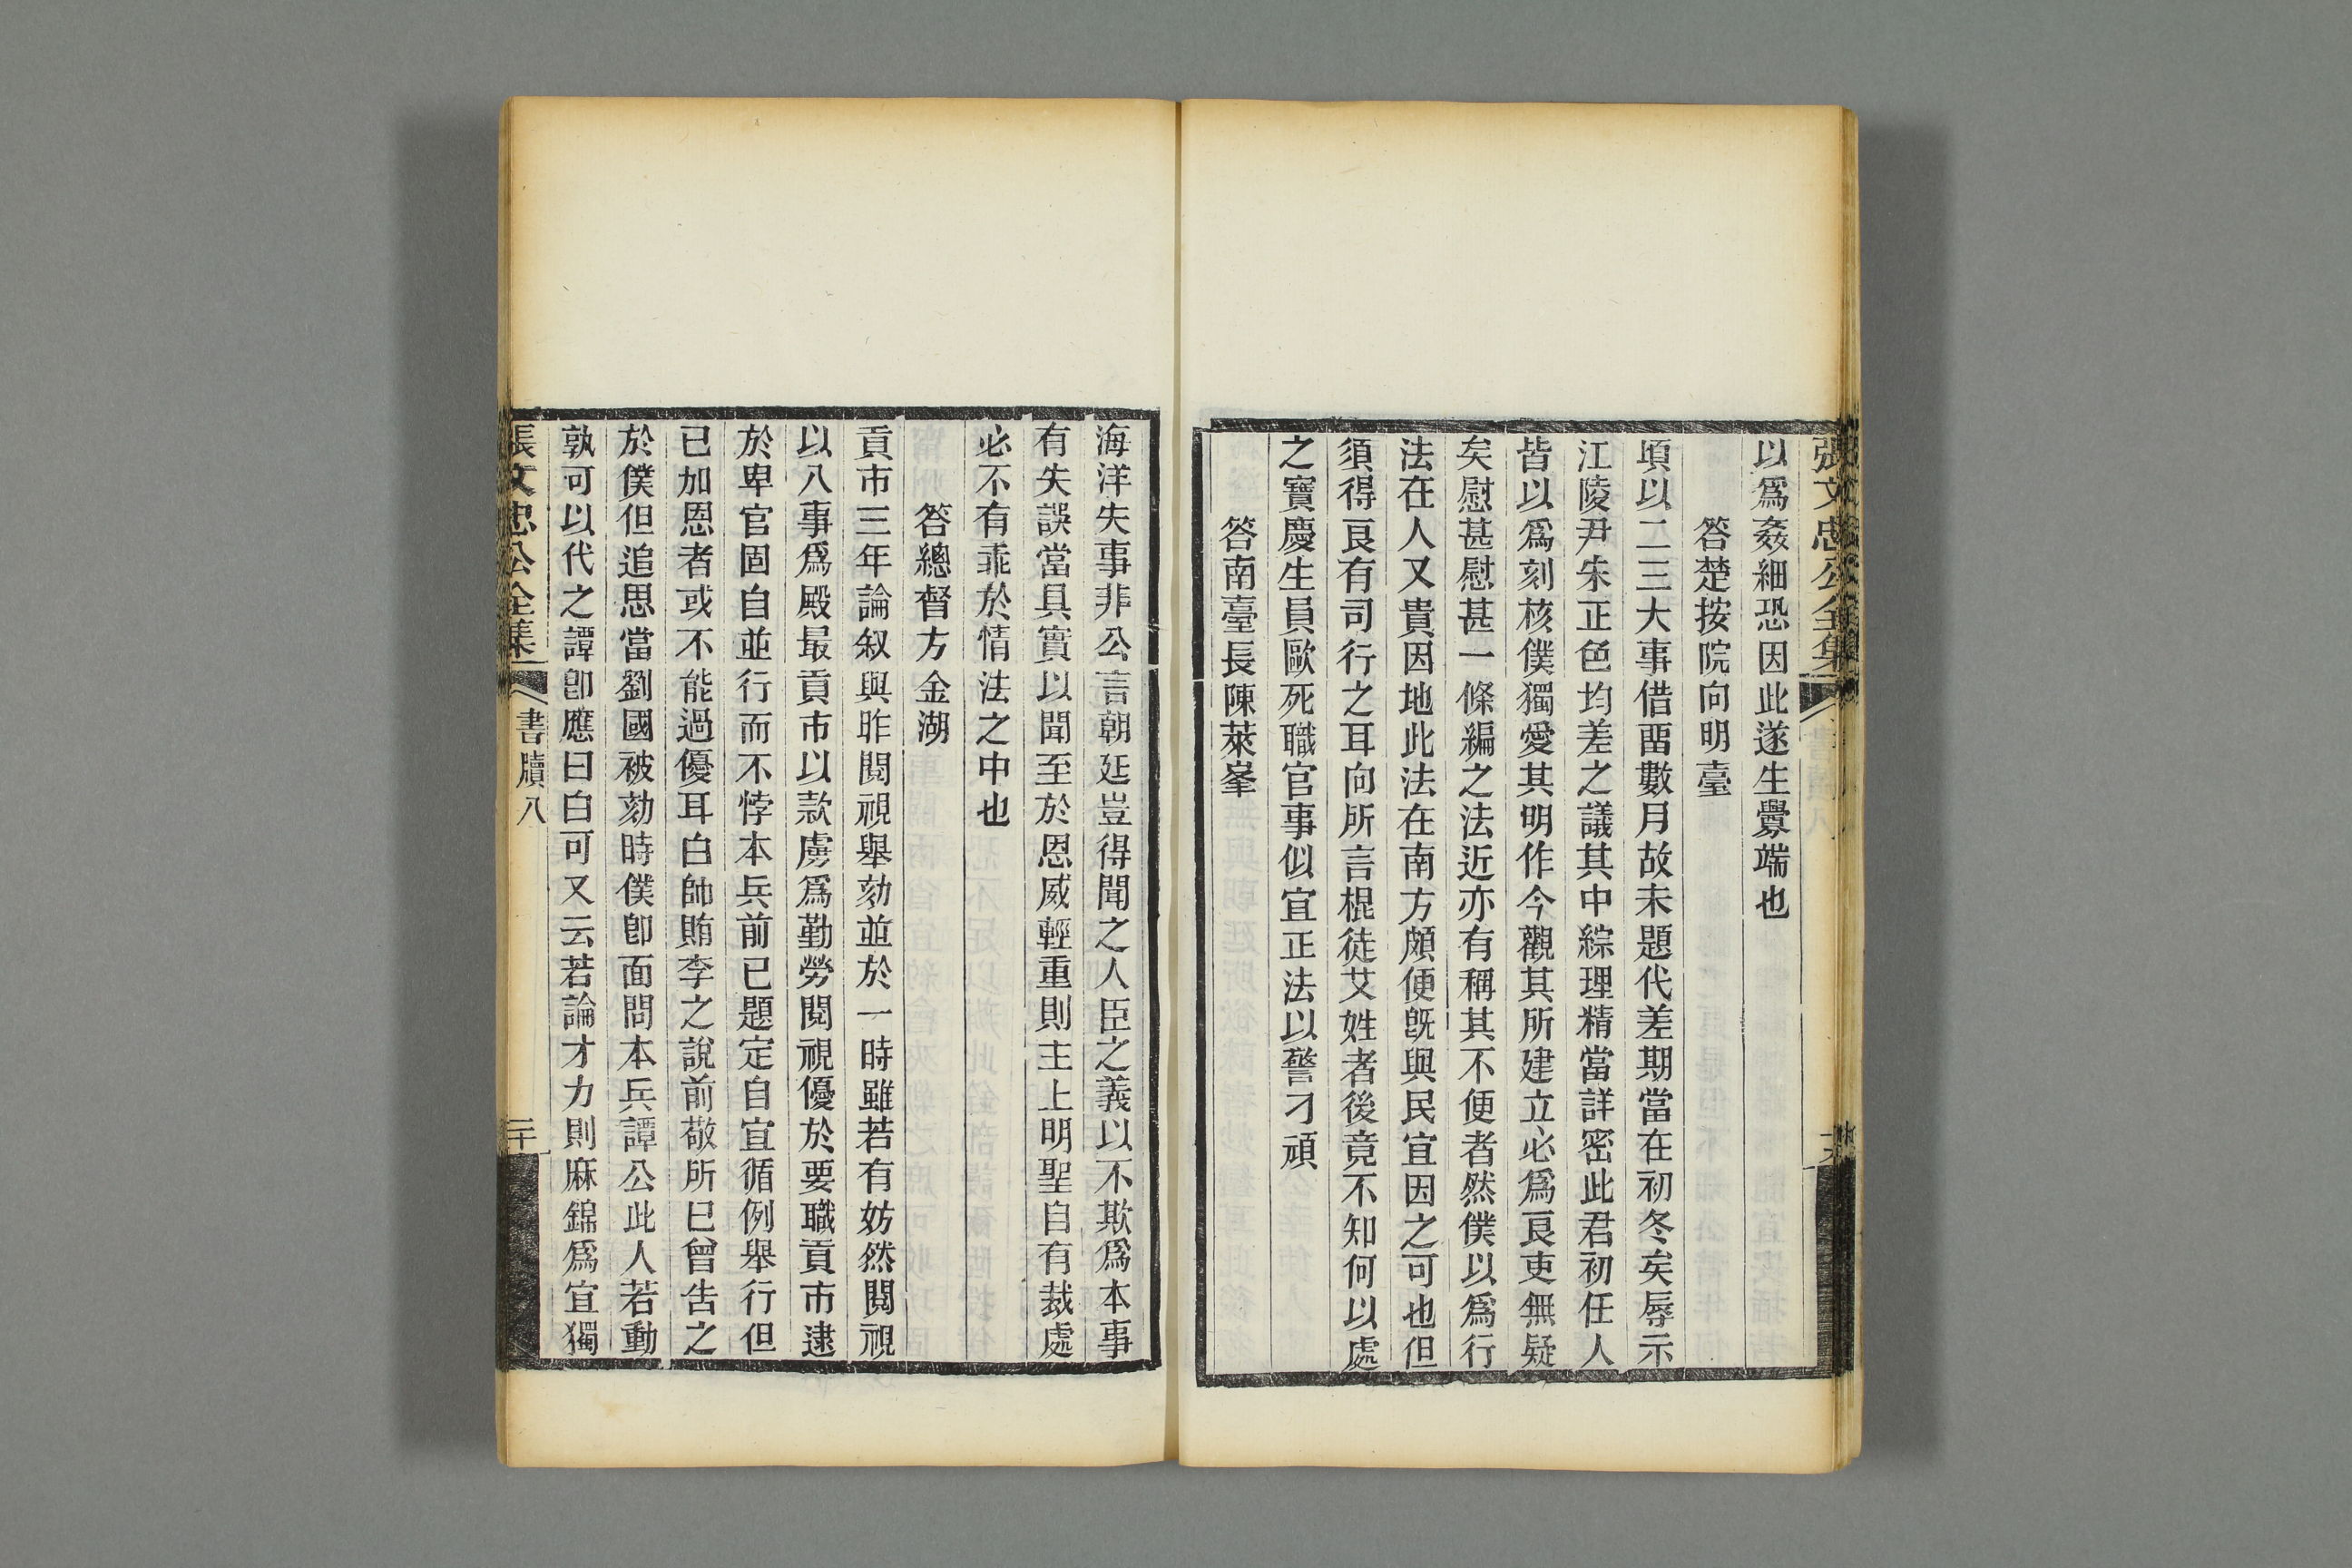 張文忠公全集
以爲姦細恐因此遂生釁端也
答楚按院向明臺
項以二三大事借畱數月故未題代差期當在初冬矣辱示
江陵尹朱正色均差之議其中綜理精當詳密此君初任人
皆以爲刻核僕獨愛其明作今觀其所建立必爲良吏無疑
矣慰甚慰甚一條編之法近亦有稱其不便者然僕以爲行
法在人又貴因地此法在南方頗便旣與民宜因之可也但
須得良有司行之耳向所言棍徒艾姓者後竟不知何以處
之寶慶生員歐死職官事似宜正法以警刁頑
答南臺長陳萊峯
海洋失事非公言朝廷豈得聞之人臣之義以不欺爲本事
有失誤當具實以聞至於恩威輕重則主上明聖自有裁處
必不有乖於情法之中也
答總督方金湖
貢市三年論叙與昨閱視舉劾並於一時雖若有妨然閱視
以八事爲殿最貢市以款虜爲勤勞閱視優於要職貢市逮
於卑官固自並行而不悖本兵前已題定自宜循例舉行但
已加恩者或不能過優耳白帥賄李之說前敬所已曾告之
於僕但追思當劉國被劾時僕卽面問本兵譚公此人若動
孰可以代之譚卽應曰白可又云若論才力則麻錦爲宜獨
張文忠公全集
書牘八
二十